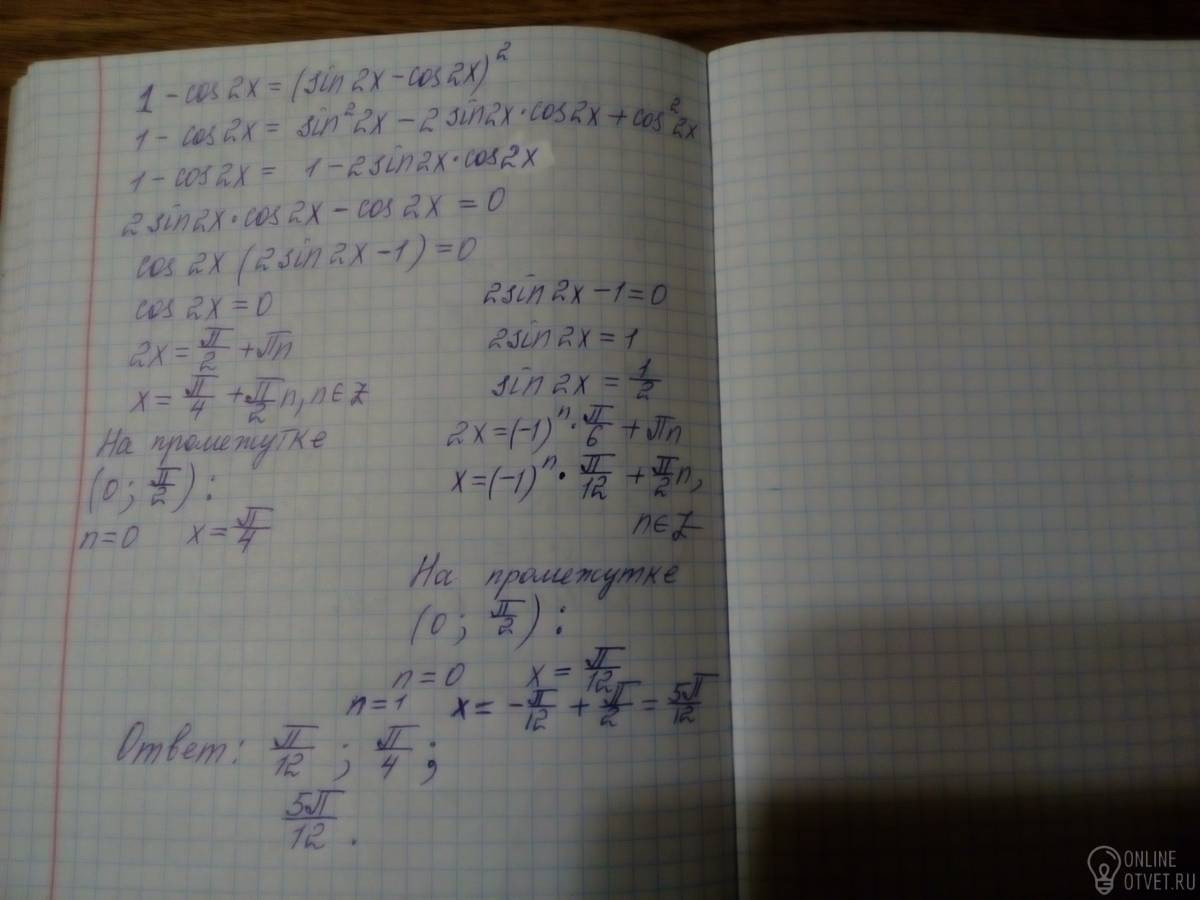 1 - cos 2x = (sin 2x - cos 2x)²
1 - cos 2x = sin² 2x - 2 sin 2x · cos 2x + cos² 2x
1 - cos 2x = 1 - 2 sin 2x · cos 2x
2 sin 2x · cos 2x - cos 2x = 0
cos 2x (2 sin 2x - 1) = 0
cos 2x = 0
2x = π/2 + πn
x = π/4 + π/2 n, n ∈ Z
На промежутке
(0; π/2):
n = 0 x = π/4
2 sin 2x - 1 = 0
2 sin 2x = 1
sin 2x = 1/2
2x = (-1)ⁿ · π/6 + πn
x = (-1)ⁿ · π/12 + π/2 n,
n ∈ Z
На промежутке
(0; π/2):
n = 0 x = π/12
n = 1 x = - π/12 + π/2 = 5π/12
Ответ: π/12 ; π/4 ;
5π/12 .
ONLINE
OTVET.RU